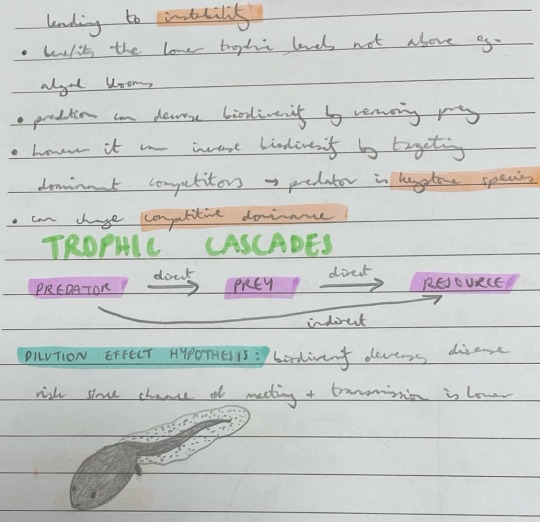 leading to instability
• benefits the lower trophic levels not above eg.
algal blooms
• predation can decrease biodiversity by removing prey
• however it can increase biodiversity by targeting
dominant competitors → predator is keystone species
• can change competitive dominance
TROPHIC CASCADES
PREDATOR direct → PREY direct → RESOURCE
indirect
DILUTION EFFECT HYPOTHESIS: biodiversity decreases disease
risk since chance of meeting + transmission is lower